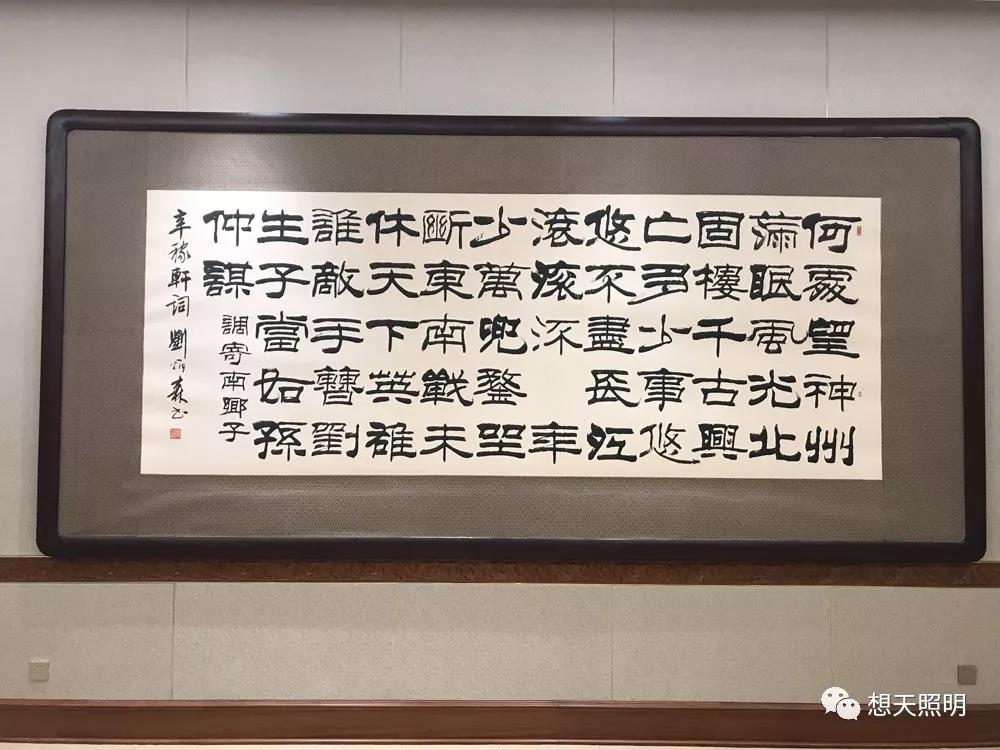 何處望神州
滿眼風光北
固樓千古興
亡多少事悠
悠不盡長江
滾滾流 年
少萬兜鍪坐
斷東南戰未
休天下英雄
誰敵手曹劉
生子當如孫
仲謀
調寄南鄉子
辛稼軒詞 劉炳森書
想天照明